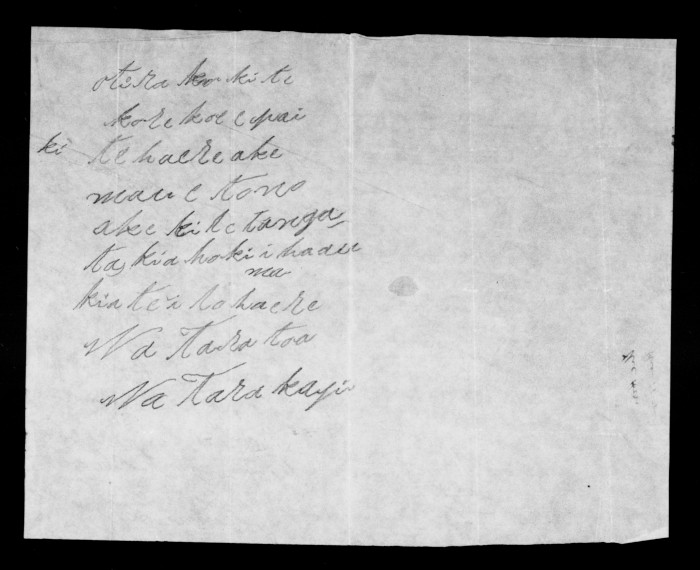 otira ko ki te
kore koe e pai
ki te haere ake
mau e tono
ake ki te tanga-
ta, kia hoki i haau
ma
kia te i to haere
Na Taratoa
Na Tara